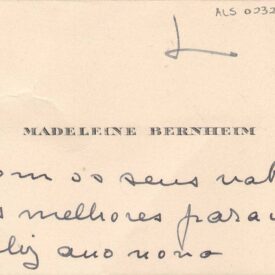 ALS 0232
L
MADELEINE BERNHEIM
om os seus vot
s melhores para u
eliz ano novo